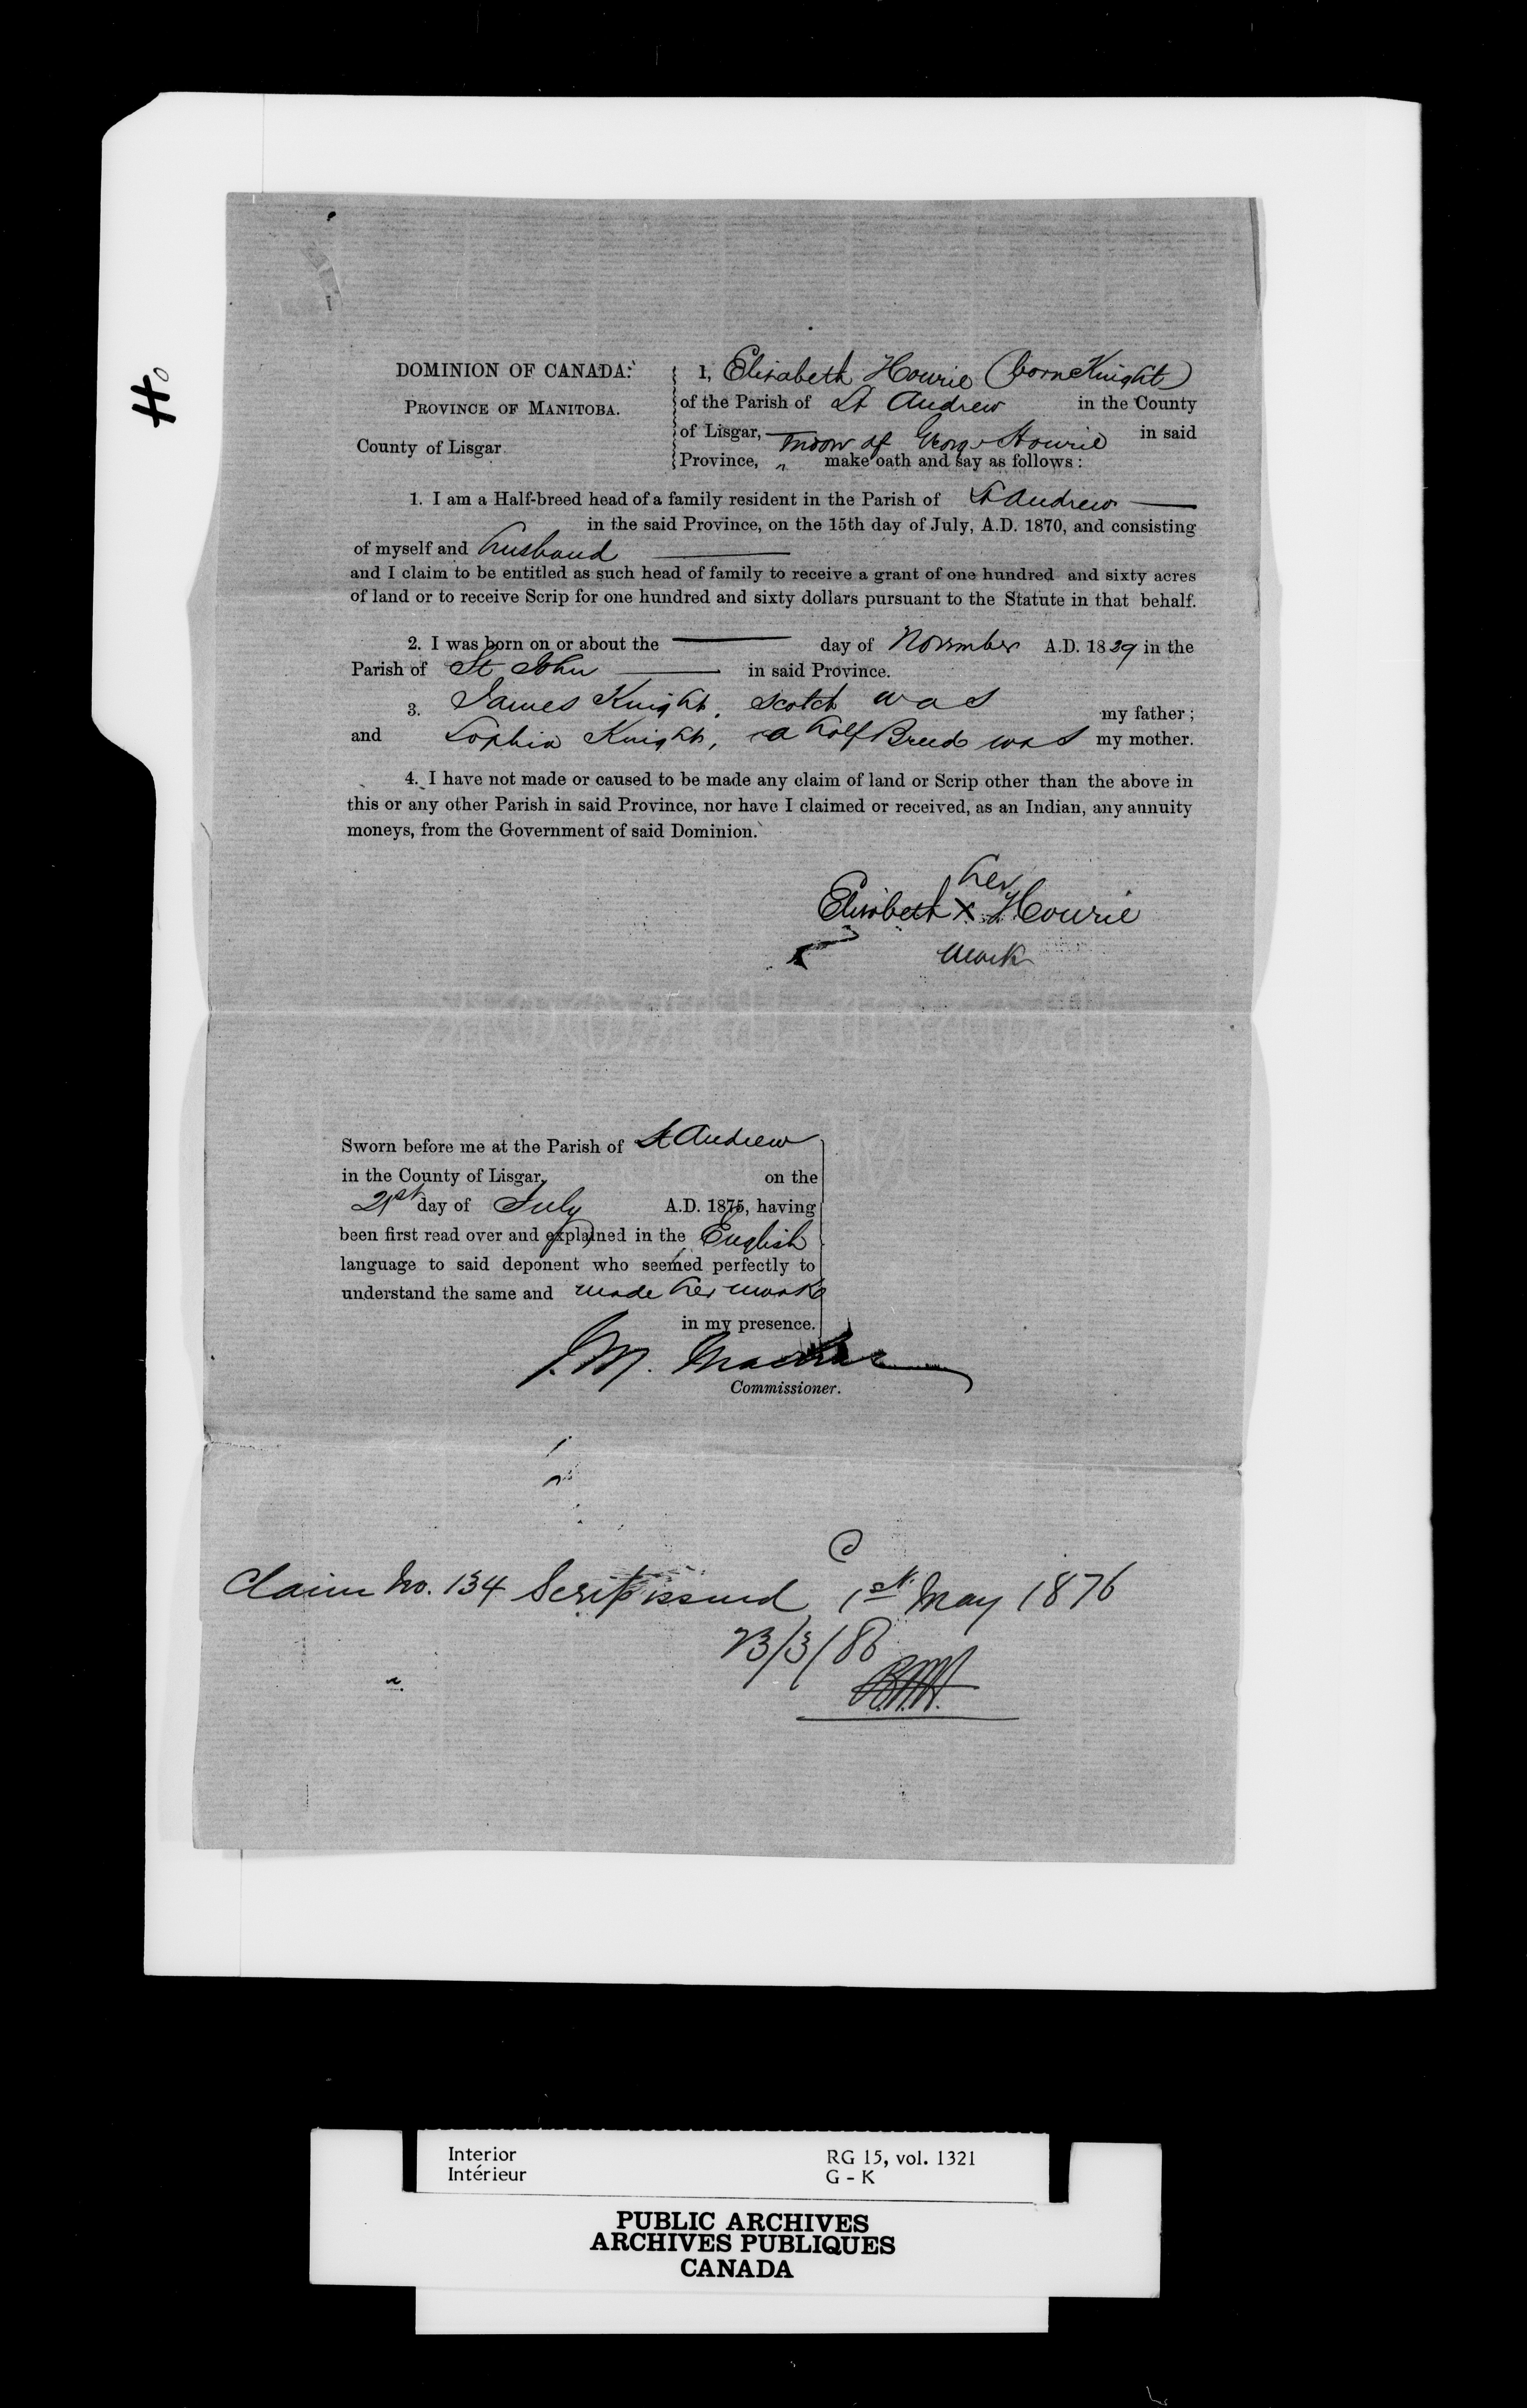 Ho
DOMINION OF CANADA:
PROVINCE OF MANITOBA.
County of Lisgar.
I, Elisabeth Howrie (born Knight)
of the Parish of St Andrew in the County
of Lisgar, widow of George Howrie in said
Province, make oath and say as follows:
1. I am a Half-breed head of a family resident in the Parish of St Andrew
in the said Province, on the 15th day of July, A.D. 1870, and consisting
of myself and husband
and I claim to be entitled as such head of family to receive a grant of one hundred and sixty acres
of land or to receive Scrip for one hundred and sixty dollars pursuant to the Statute in that behalf.
2. I was born on or about the day of November A.D. 1829 in the
Parish of St John in said Province.
3. James Knight, Scotch was my father;
and Sophia Knight, a half Breed was my mother.
4. I have not made or caused to be made any claim of land or Scrip other than the above in
this or any other Parish in said Province, nor have I claimed or received, as an Indian, any annuity
moneys, from the Government of said Dominion.
her
Elisabeth x Howrie
mark
Sworn before me at the Parish of St Andrew
in the County of Lisgar, on the
21st day of July A.D. 1875, having
been first read over and explained in the English
language to said deponent who seemed perfectly to
understand the same and made her mark
in my presence.
J. M. Machar
Commissioner.
Claim No. 134 Scrip issued 1st May 1876
23/3/86
Interior RG 15, vol. 1321
Intérieur G - K
PUBLIC ARCHIVES
ARCHIVES PUBLIQUES
CANADA